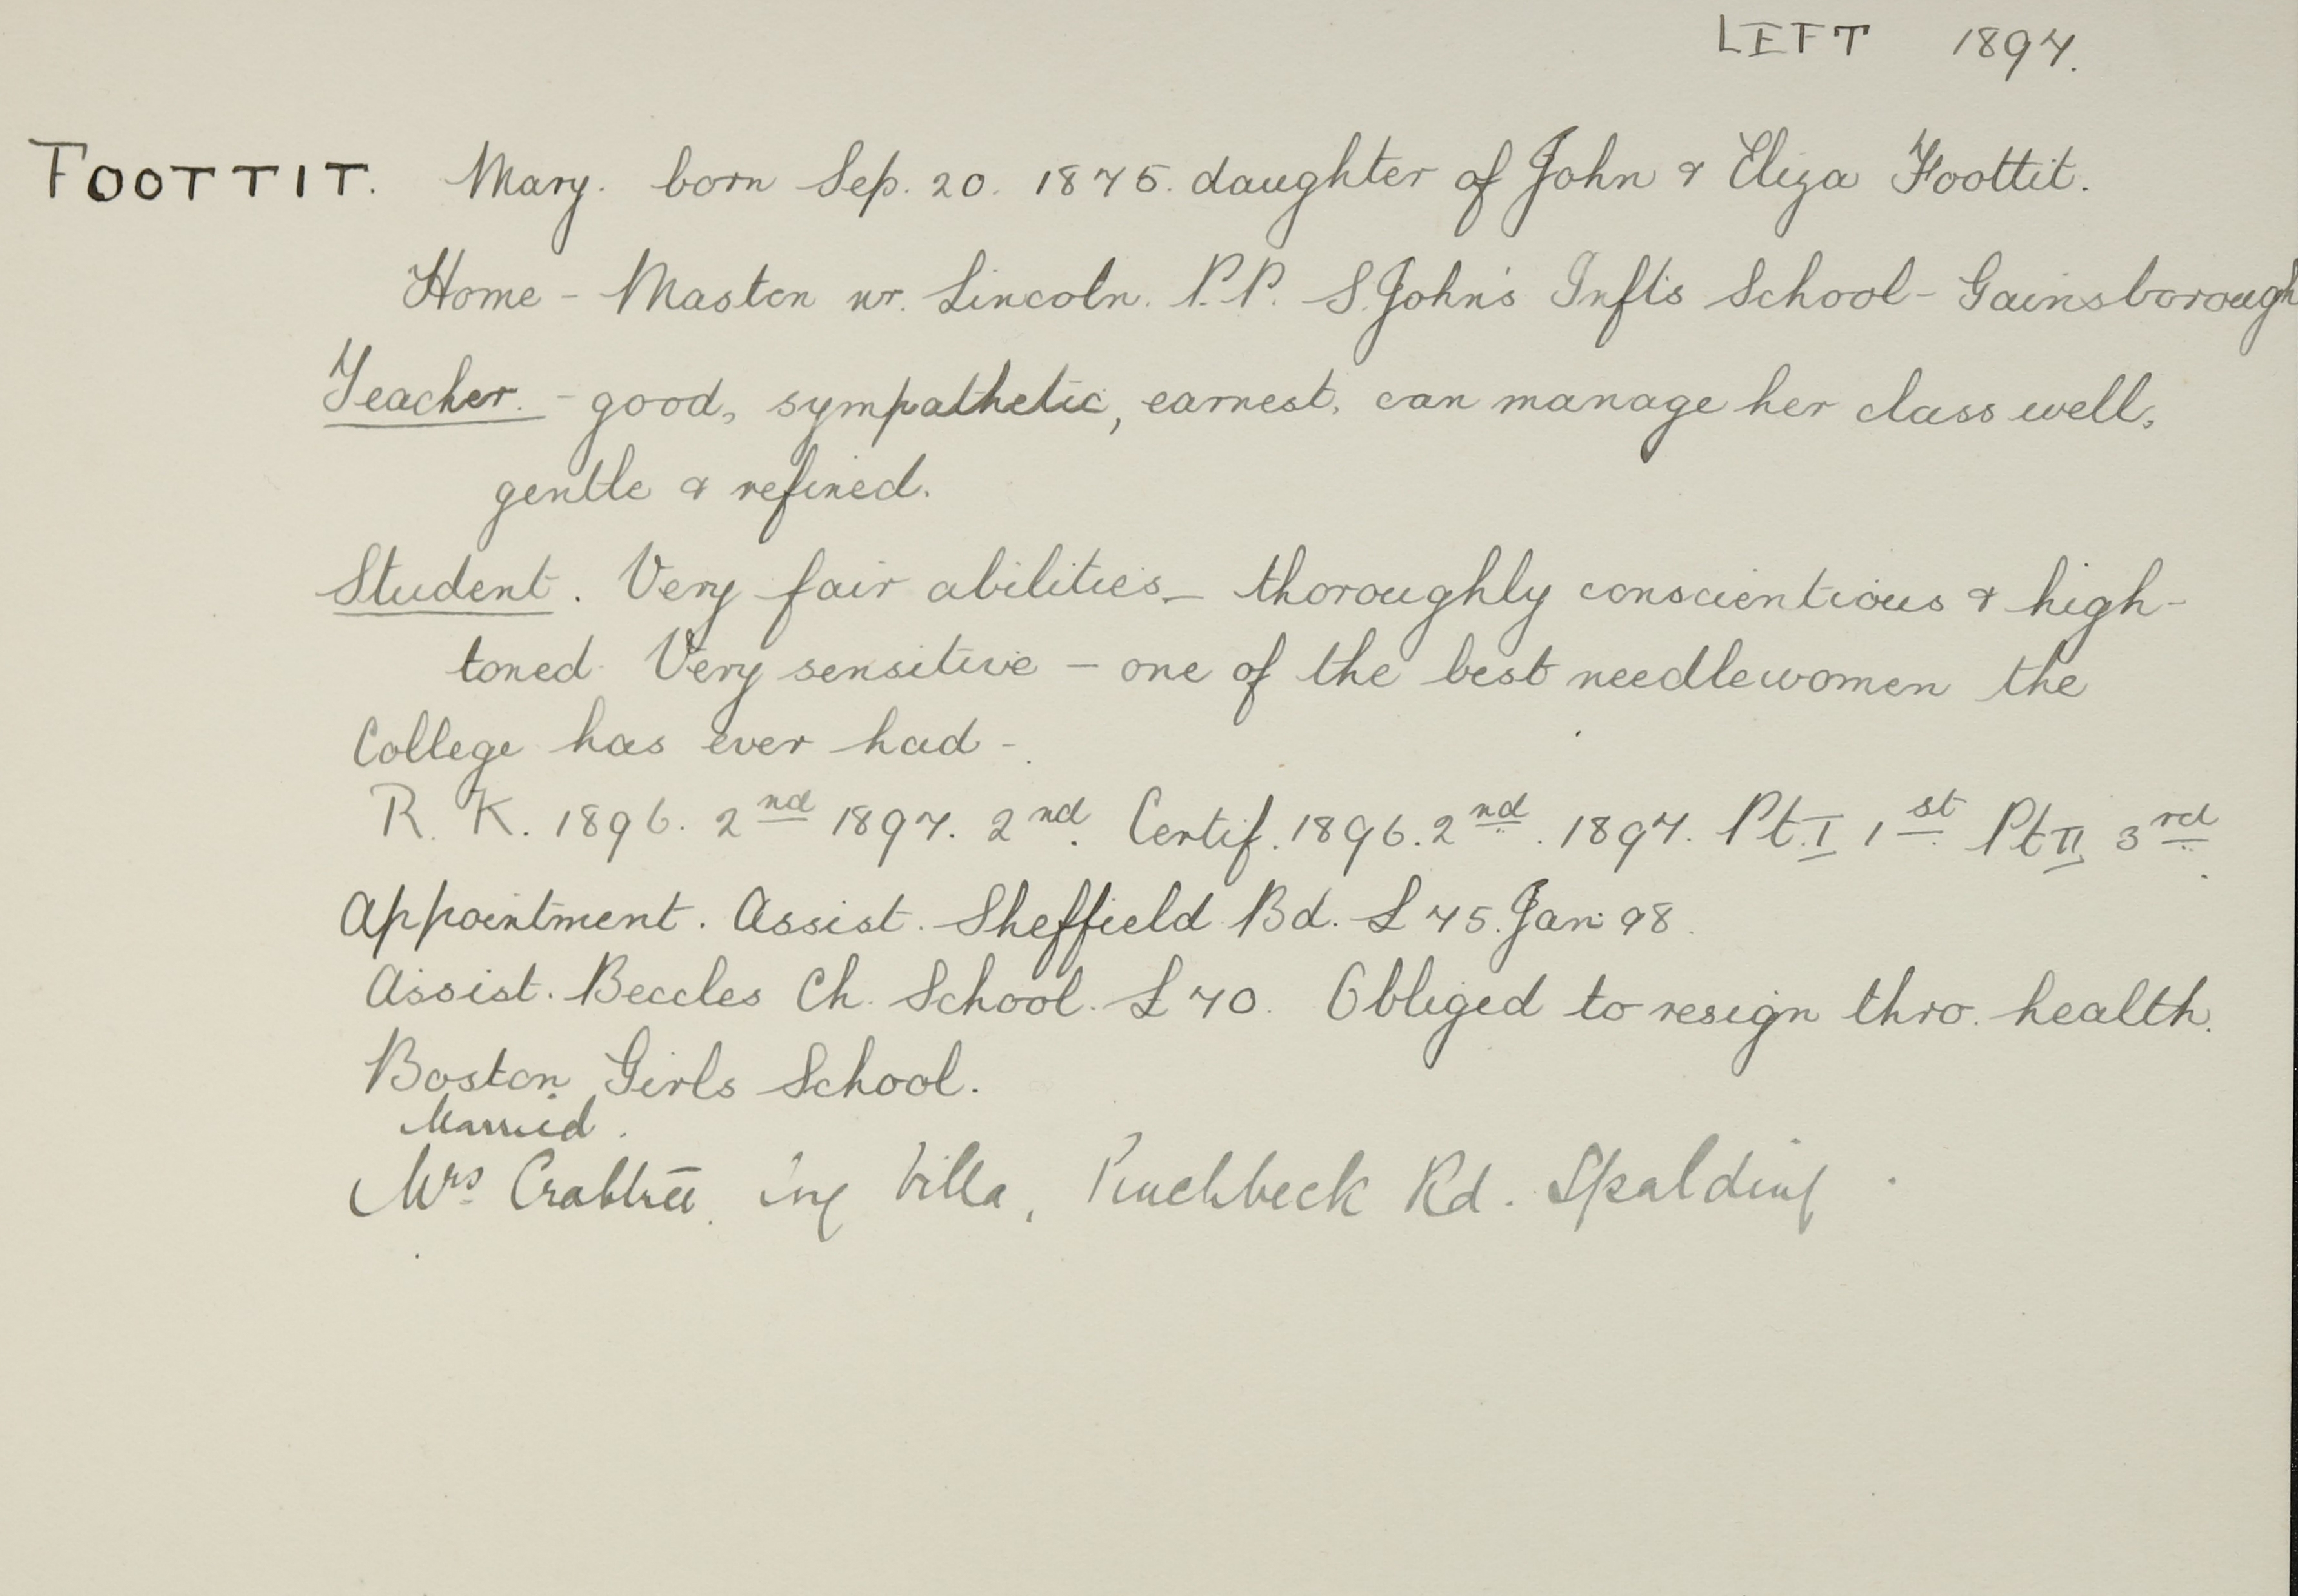 LEFT 1897.
FOOTTIT. Mary. born Sep. 20. 1875. daughter of John & Eliza Foottit.
Home - Maston nr. Lincoln. P.P. S. John's Infts School - Gainsborough
Teacher. - good, sympathetic, earnest, can manage her class well,
gentle & refined.
Student. Very fair abilities - thoroughly conscientious & high-
toned. Very sensitive - one of the best needlewomen the
College has ever had -.
R. K. 1896. 2nd 1897. 2nd. Certif. 1896. 2nd. 1897. Pt. I 1st Pt II 3rd.
Appointment. Assist. Sheffield Bd. £75. Jan. 98.
Assist. Beccles Ch. School. £70. Obliged to resign thro. health.
Boston Girls School.
Married.
Mrs Crabtree. Villa, Pinchbeck Rd. Spalding.